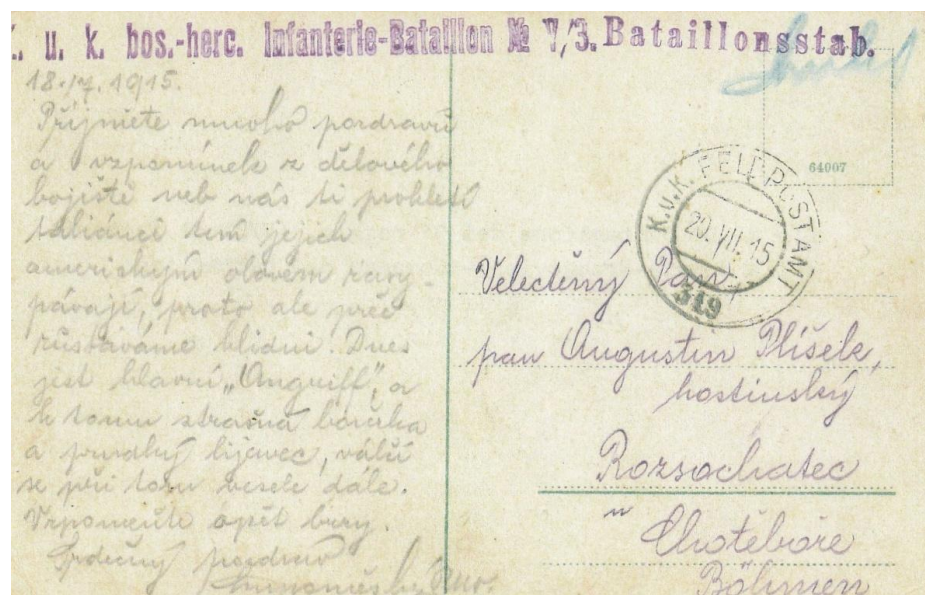 . u. k. bos.-herc. Infanterie-Bataillon № V/3. Bataillonsstab.
18./7. 1915.
Přijměte mnoho pozdravů
a vzpomínek z dělového
bojiště neb nás ti prokletí
taliánci tem jejich
ameriskym olovem
pávají, proto ale
zůstáváme klidni. Dnes
jest hlavní „Angriff“, a
k tomu strašná bouřka
a prudký lijavec, válčí
se při tom vesele dále.
opět
Srdečný pozdrav
64007
K.u.K. FELDPOSTAMT
20. VII. 15
319
Velectěný Pan
pan Augustin Plíšek,
hostinský
Rozsochatec
u
Chotěboře
Böhmen